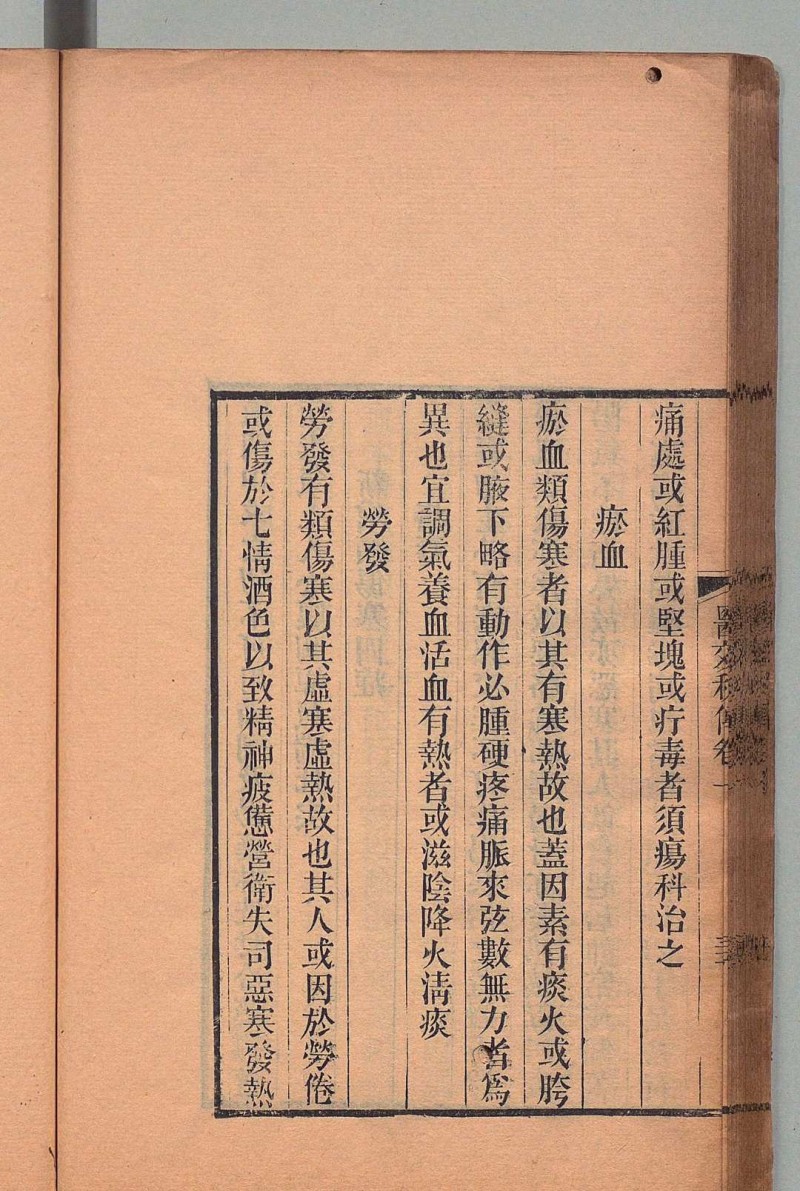 痛處或紅腫或堅塊或疔毒者須瘍科治之
瘀血
瘀血類傷寒者以其有寒熱故也蓋因素有痰火或胯
縫或腋下略有動作必腫硬疼痛脈來弦數無力者爲
異也宜調氣養血活血有熱者或滋陰降火淸痰
勞發
勞發有類傷寒以其虛寒虛熱故也其人或因於勞倦
或傷於七情酒色以致精神疲憊營衛失司惡寒發熱